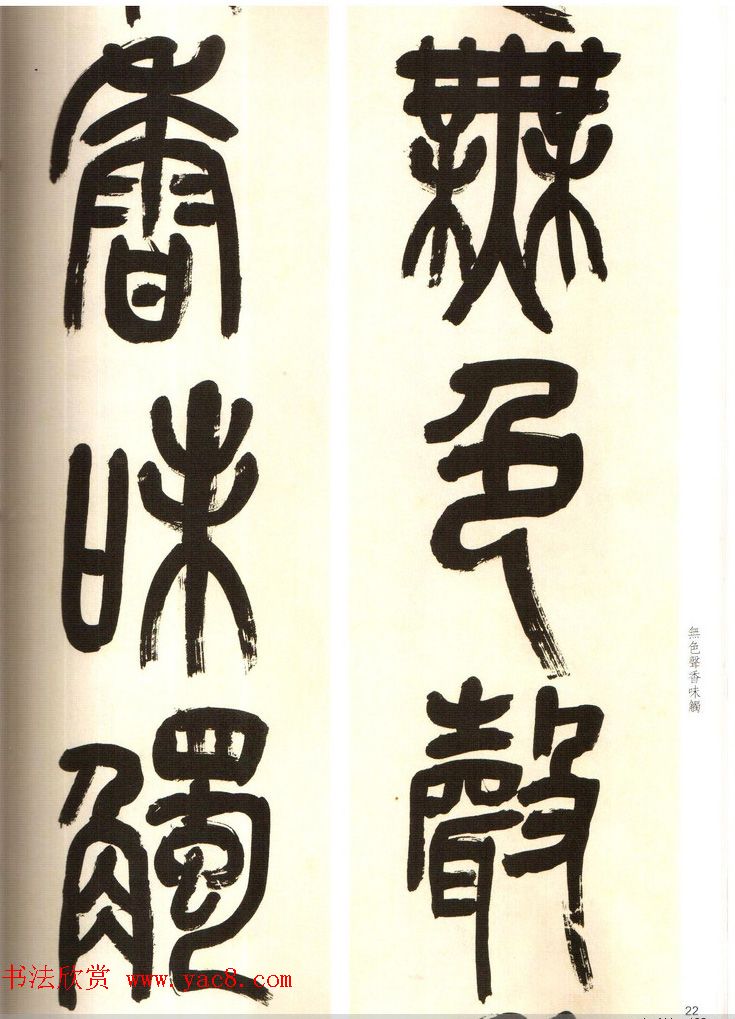 無色聲
香味觸
無色聲香味觸
22
书法欣赏 www.yac8.com